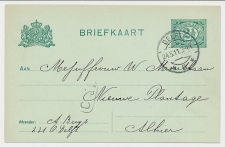 BRIEFKAART
Aan: Mejuffrouw M.
Nieuwe Plantage
Alhier
Afzender: A. Buys
221 O Delft